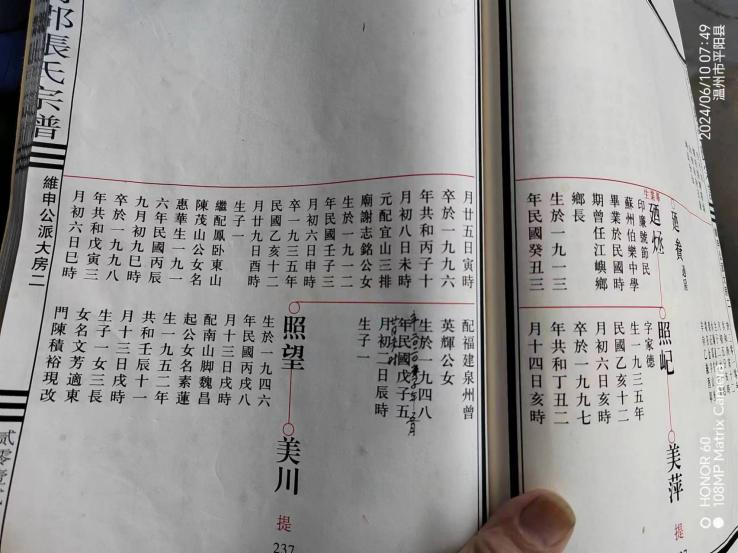 廼
印廉號節民
蘇州伯樂中學
畢業於民國時
期曾任江嶼鄉
鄉長
生於一九一三
年民國癸丑三
月廿五日寅時
卒於一九九六
年共和丙子十
月初八日未時
元配宜山三排
廟謝志銘公女
生於一九一二
年民國壬子三
月初六日申時
卒一九三五年
民國乙亥十二
月廿九日酉時
生子一
繼配鳳卧東山
陳茂山公女名
惠華生一九一
六年民國丙辰
九月初九巳時
卒於一九九八
年共和戊寅三
月初六日巳時
照屺
字家德
生一九三五年
民國乙亥十二
月初六日亥時
卒於一九九七
年共和丁丑二
月十四日亥時
配福建泉州曾
英輝公女
生於一九四八
年民國戊子五
月初二日辰時
生子一
照望
生於一九四六
年民國丙戌八
月十三日戌時
配南山脚魏昌
起公女名素蓮
生一九五二年
共和壬辰十一
月十三日戌時
生子一女三長
女名文芳適東
門陳積裕現改
美萍
提
美川
提
237
張氏宗譜
維申公派大房二
2024/06/10 07:49
温州市平阳县
HONOR 60
108MP Matrix Camera